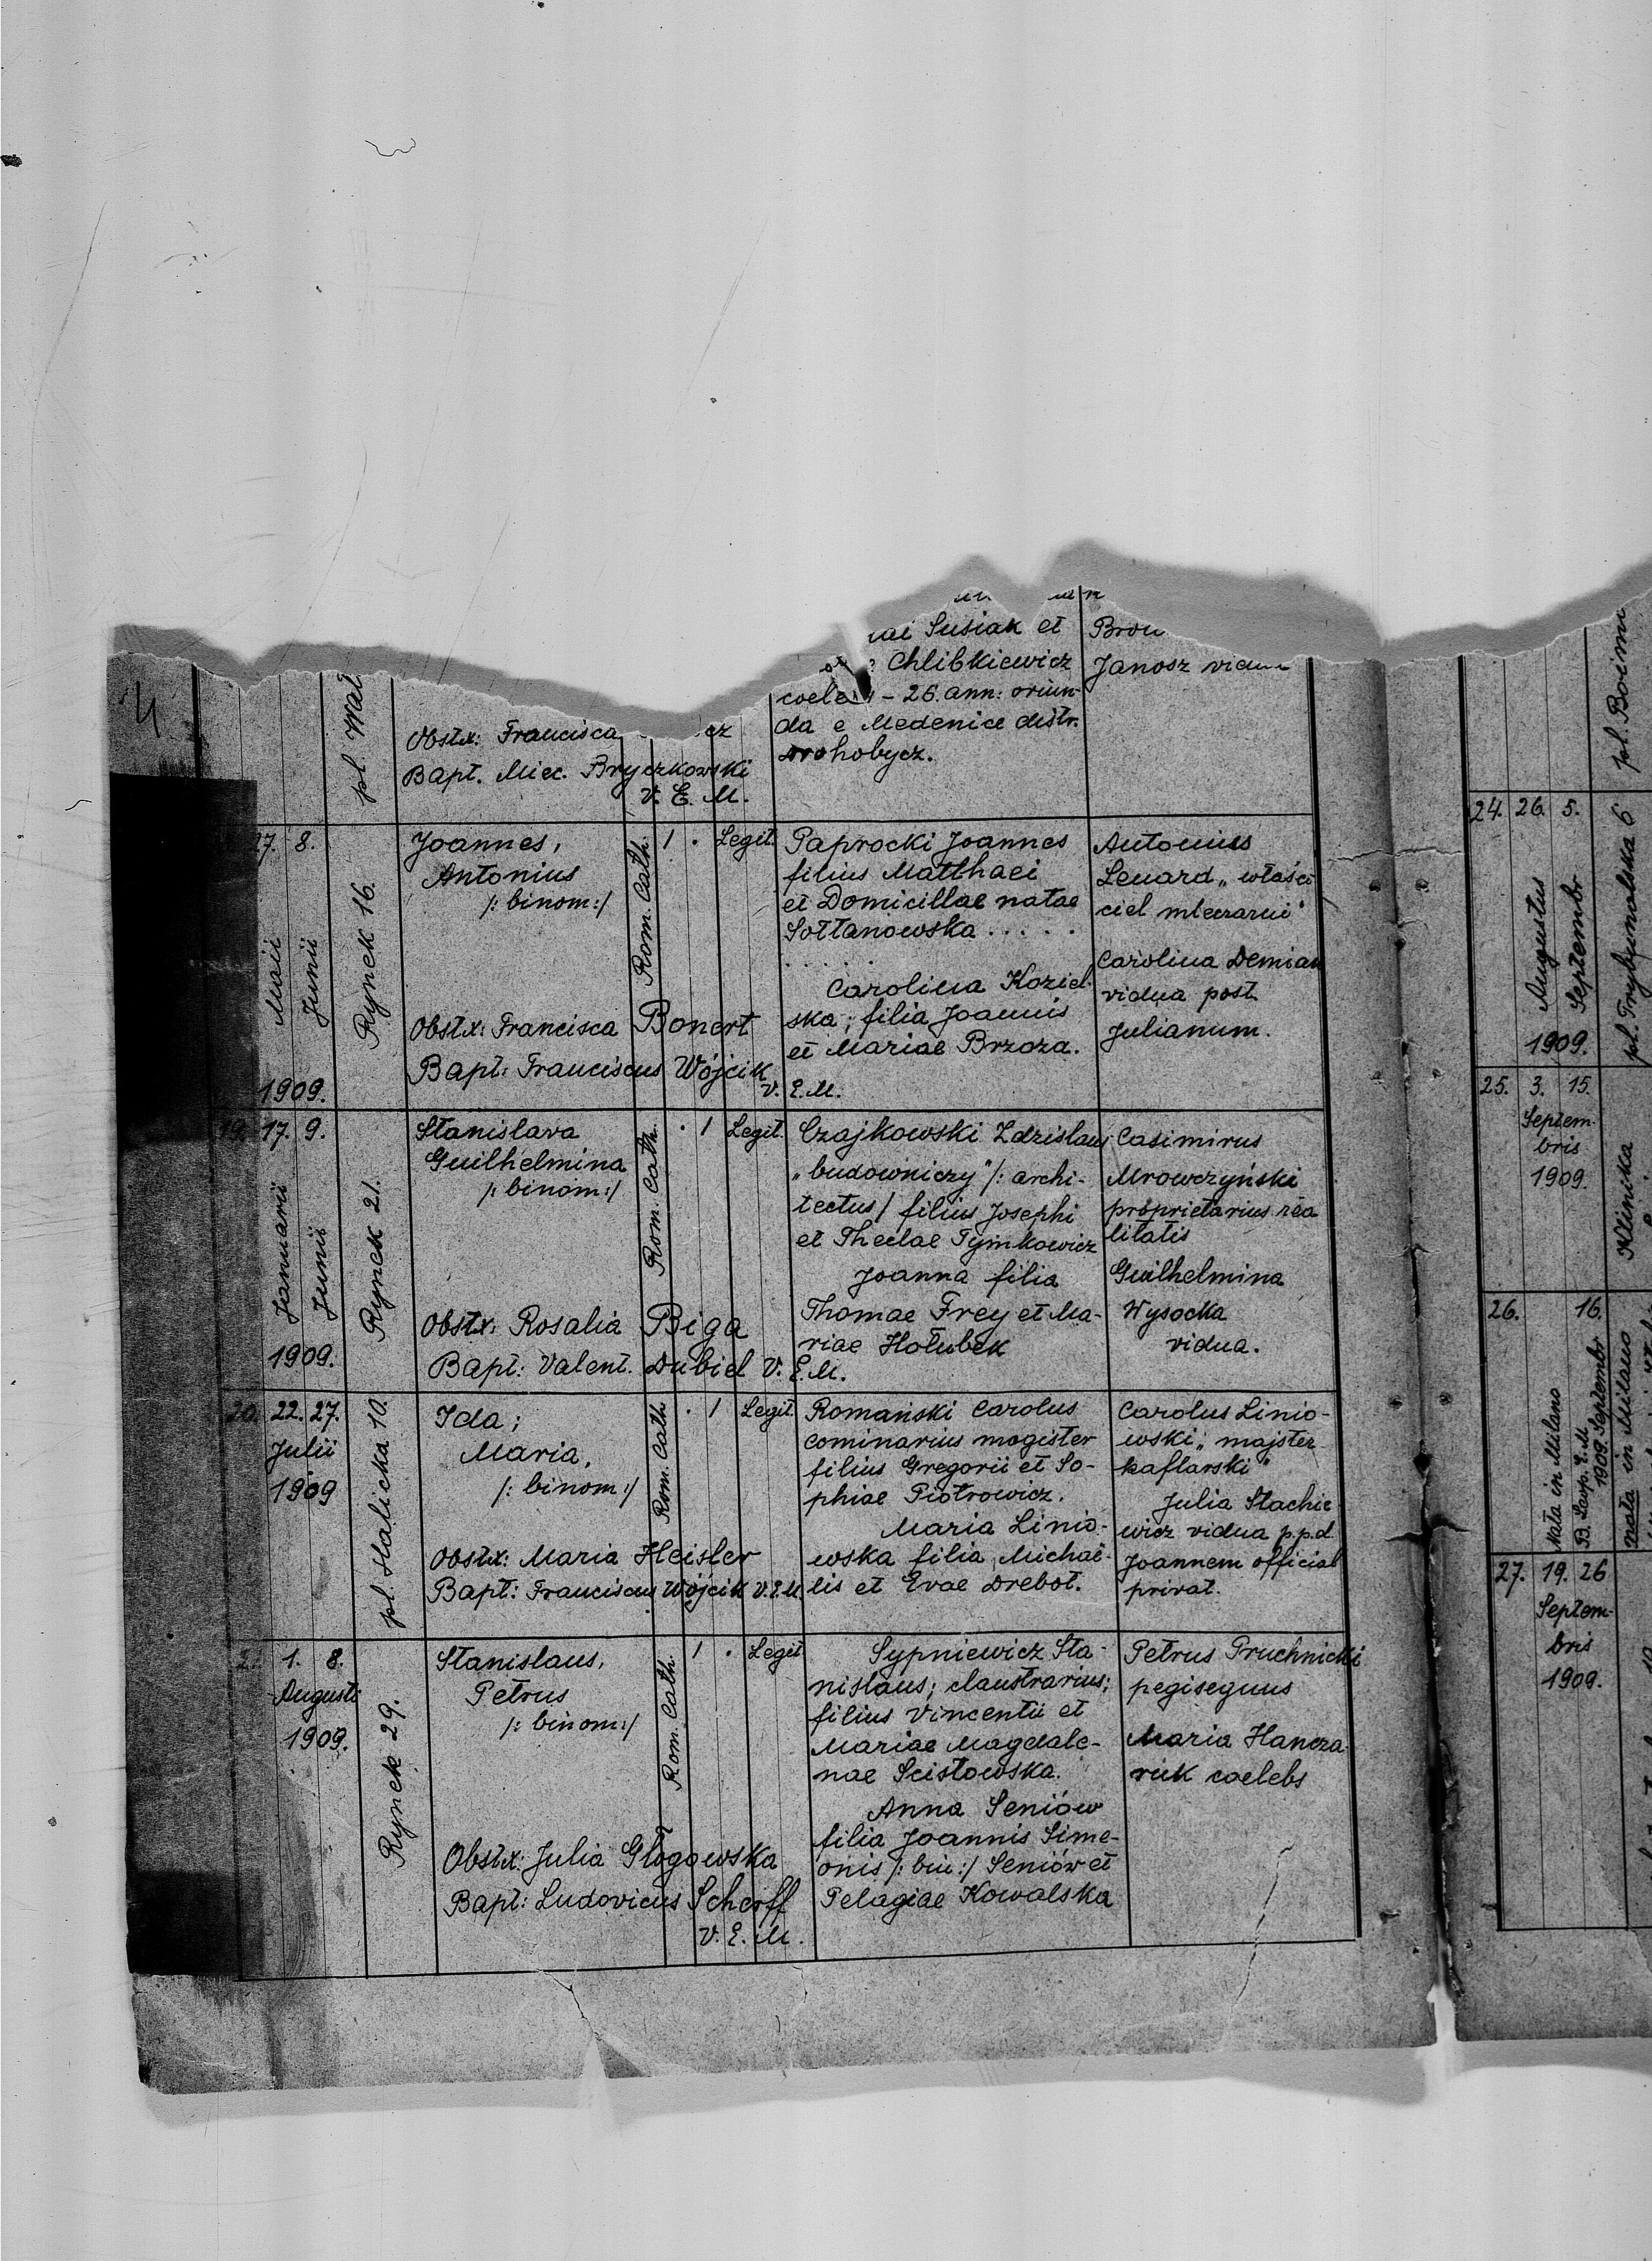 Susiak et
Brou
Chlibkiewicz
Janosz
- 26. ann: oriun-
da e Medenice distr.
drohobycz.
pl.
Obstx: Francisca
Bapt. Miec. Bryczkowski
V. E. M.
27. 8.
Maii
Junii
1909.
Rynek 16.
Joannes,
Antonius
/: binom:/
Obstx: Francisca Bonert
Bapt: Franciscus Wójcik
V. E. M.
Rom. Cath.
1 .
Legit.
Paprocki Joannes
filius Matthaei
et Domicillae natae
Sołtanowska . . . . .
. . . . .
Carolina Koziel-
ska; filia Joannis
et Mariae Brzoza.
Antonius
Lenard „ właści-
ciel mleczarni"
Carolina Demian
vidua post
Julianum.
19. 17. 9.
Januarii
Junii
1909.
Rynek 21.
Stanislava
Guilhelmina
/: binom:/
Obstx: Rosalia Biga
Bapt: Valent. Dubiel V. E. M.
Rom. Cath.
. 1
Legit.
Czajkowski Zdzislaus
„budowniczy" /: archi-
tectus/ filius Josephi
et Theclae Tymkowicz
Joanna filia
Thomae Frey et Ma-
riae Hołubek
Casimirus
Mrowczyński
proprietarius rea
litatis
Guilhelmina
Wysocka
vidua.
20. 22. 27.
Julii
1909
pl. Halicka 10.
Ida;
Maria,
/: binom:/
Obstx: Maria Heisler
Bapt: Franciscus Wójcik V. E. M.
Rom. Cath
. 1
Legit.
Romański Carolus
cominarius magister
filius Gregorii et So-
phiae Piotrowicz.
Maria Linio-
wska filia Michaë-
lis et Evae Drebot.
Carolus Linio-
wski „ majster
kaflarski"
Julia Stachie
wicz vidua p.p.d.
Joannem official
privat.
1. 8.
Augusti
1909.
Rynek 29.
Stanislaus,
Petrus
/: binom:/
Obstx: Julia Głogowska
Bapt: Ludovicus Scherff
V. E. M.
Rom. Cath.
1 .
Legit
Sypniewicz Sta-
nislaus; claustrarius;
filius Vincentii et
Mariae Magdale-
nae Scisłowska.
Anna Seniów
filia Joannis Sime-
onis /: bin:/ Seniów et
Pelagiae Kowalska
Petrus Pruchnicki
pegiseguus
Maria Hancza-
ruk caelebs
pl. Boimi
24. 26. 5.
Augustus
Septembr
1909.
pl. Trybunalska 6
25. 3. 15.
Septem-
bris
1909.
Klinika
26. 16.
Nata in Milano
1909. Septembr
nata in Milano
27. 19. 26
Septem-
bris
1909.